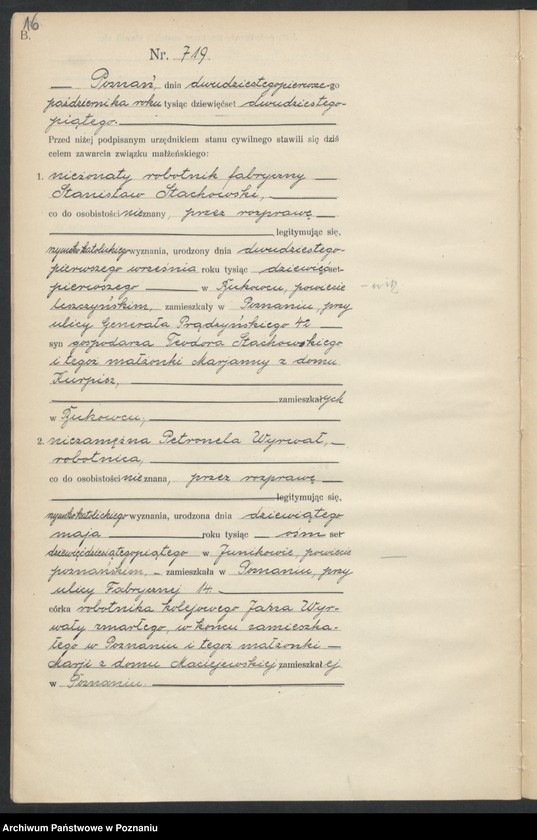 16
B.
Nr. 719.
Poznań, dnia dwudziestegopierwsze-go
października roku tysiąc dziewięćset dwudziestego-
piątego.
Przed niżej podpisanym urzędnikiem stanu cywilnego stawili się dziś
celem zawarcia związku małżeńskiego:
1. nieżonaty robotnik fabryczny
Stanisław Stachowski,
co do osobistości nieznany, przez rozprawę
legitymując się,
rzymsko katolickiego wyznania, urodzony dnia dwudziestego-
pierwszego września roku tysiąc dziewięćset-
pierwszego w Żukowcu, powiecie
leszczyńskim, zamieszkały w Poznaniu, przy
ulicy Generała Prądzyńskiego 42
syn gospodarza Teodora Stachowskiego
i tegoż małżonki Marjanny z domu
Kurpisz,
zamieszkałych
w Żukowcu,
2. niezamężna Petronela Wyrwał,
robotnica,
co do osobistości nieznana, przez rozprawę
legitymując się,
rzymsko katolickiego wyznania, urodzona dnia dziewiątego
maja roku tysiąc ośm set
dziewięćdziesiątegopiątego w Junikowie, powiecie
poznańskim, zamieszkała w Poznaniu, przy
ulicy Fabrycznej 14
córka robotnika kolejowego Jana Wyr-
wały zmarłego, w końcu zamieszka-
łego w Poznaniu i tegoż małżonki
Marji z domu Maciejewskiej zamieszkałej
w Poznaniu.
Archiwum Państwowe w Poznaniu